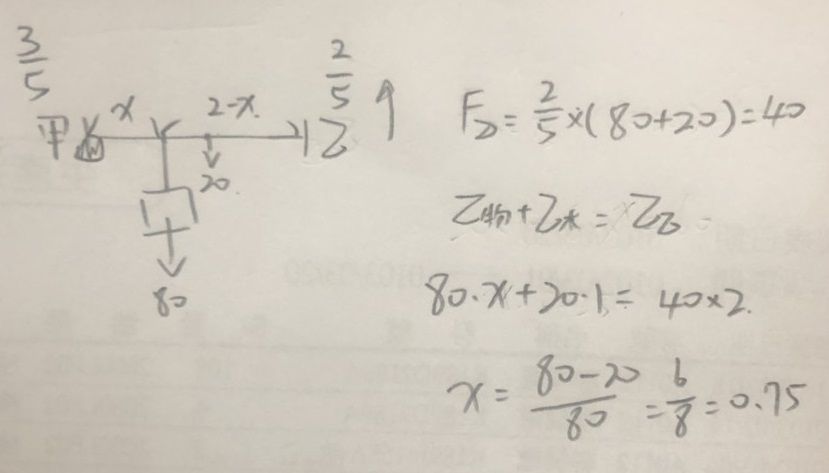 3/5
x
2-x
2/5
甲
乙
20
80
F乙 = 2/5 × (80+20) = 40
τ物 + τ木 = τ乙
80·x + 20·1 = 40×2
x = (80-20)/80 = 6/8 = 0.75